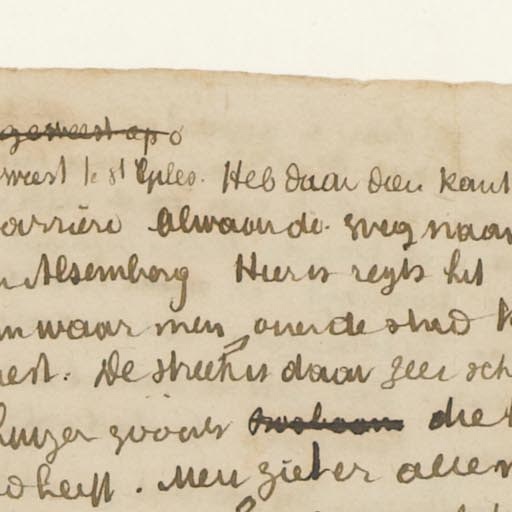 geweest op o
weest te St Gyles. Heb daar dien kant
barrière alwaar de weg naar
n Alsemberg Hier is regts het
n waar men over de stad k
est. De streek is daar zeer sch
huizen zooals die
d heeft. Men ziet er allen